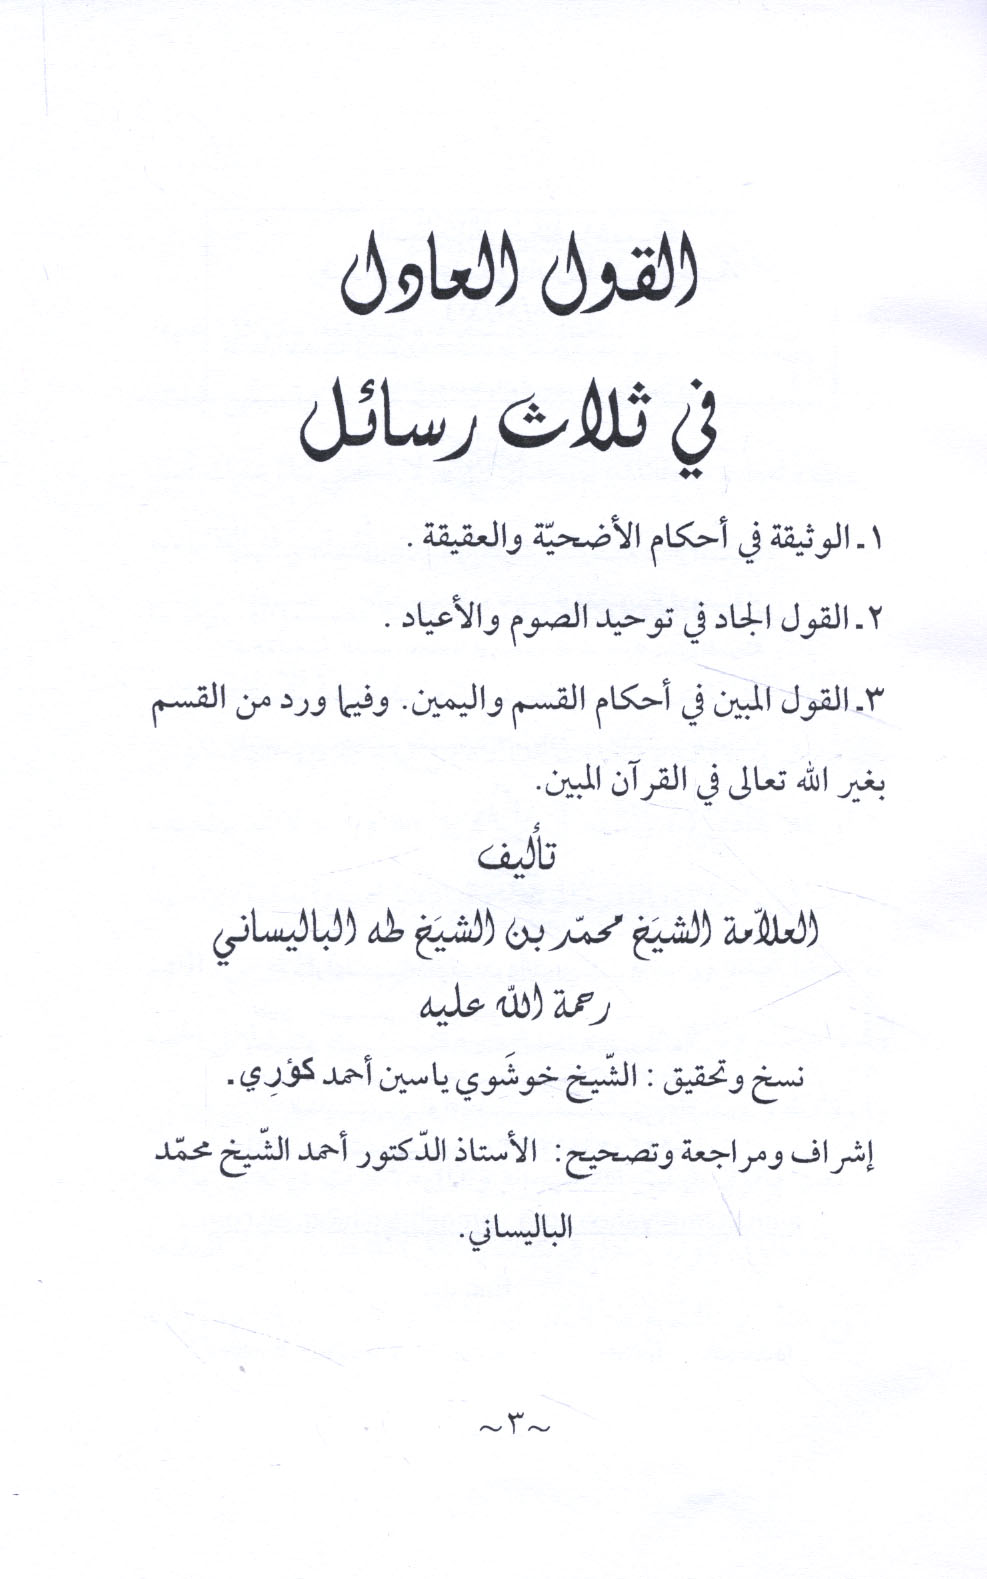 القول العادل
في ثلاث رسائل
١ـ الوثيقة في أحكام الأضحيّة والعقيقة .
٢ـ القول الجاد في توحيد الصوم والأعياد .
٣ـ القول المبين في أحكام القسم واليمين. وفيما ورد من القسم
بغير الله تعالى في القرآن المبين.
تأليف
العلاّمة الشيَخ محمّد بن الشيَخ طه الباليساني
رحمة اللّه عليه
نسخ وتحقيق : الشّيخ خوشَوي ياسين أحمد كؤرِي.
إشراف ومراجعة وتصحيح: الأستاذ الدّكتور أحمد الشّيخ محمّد
الباليساني.
~٣~